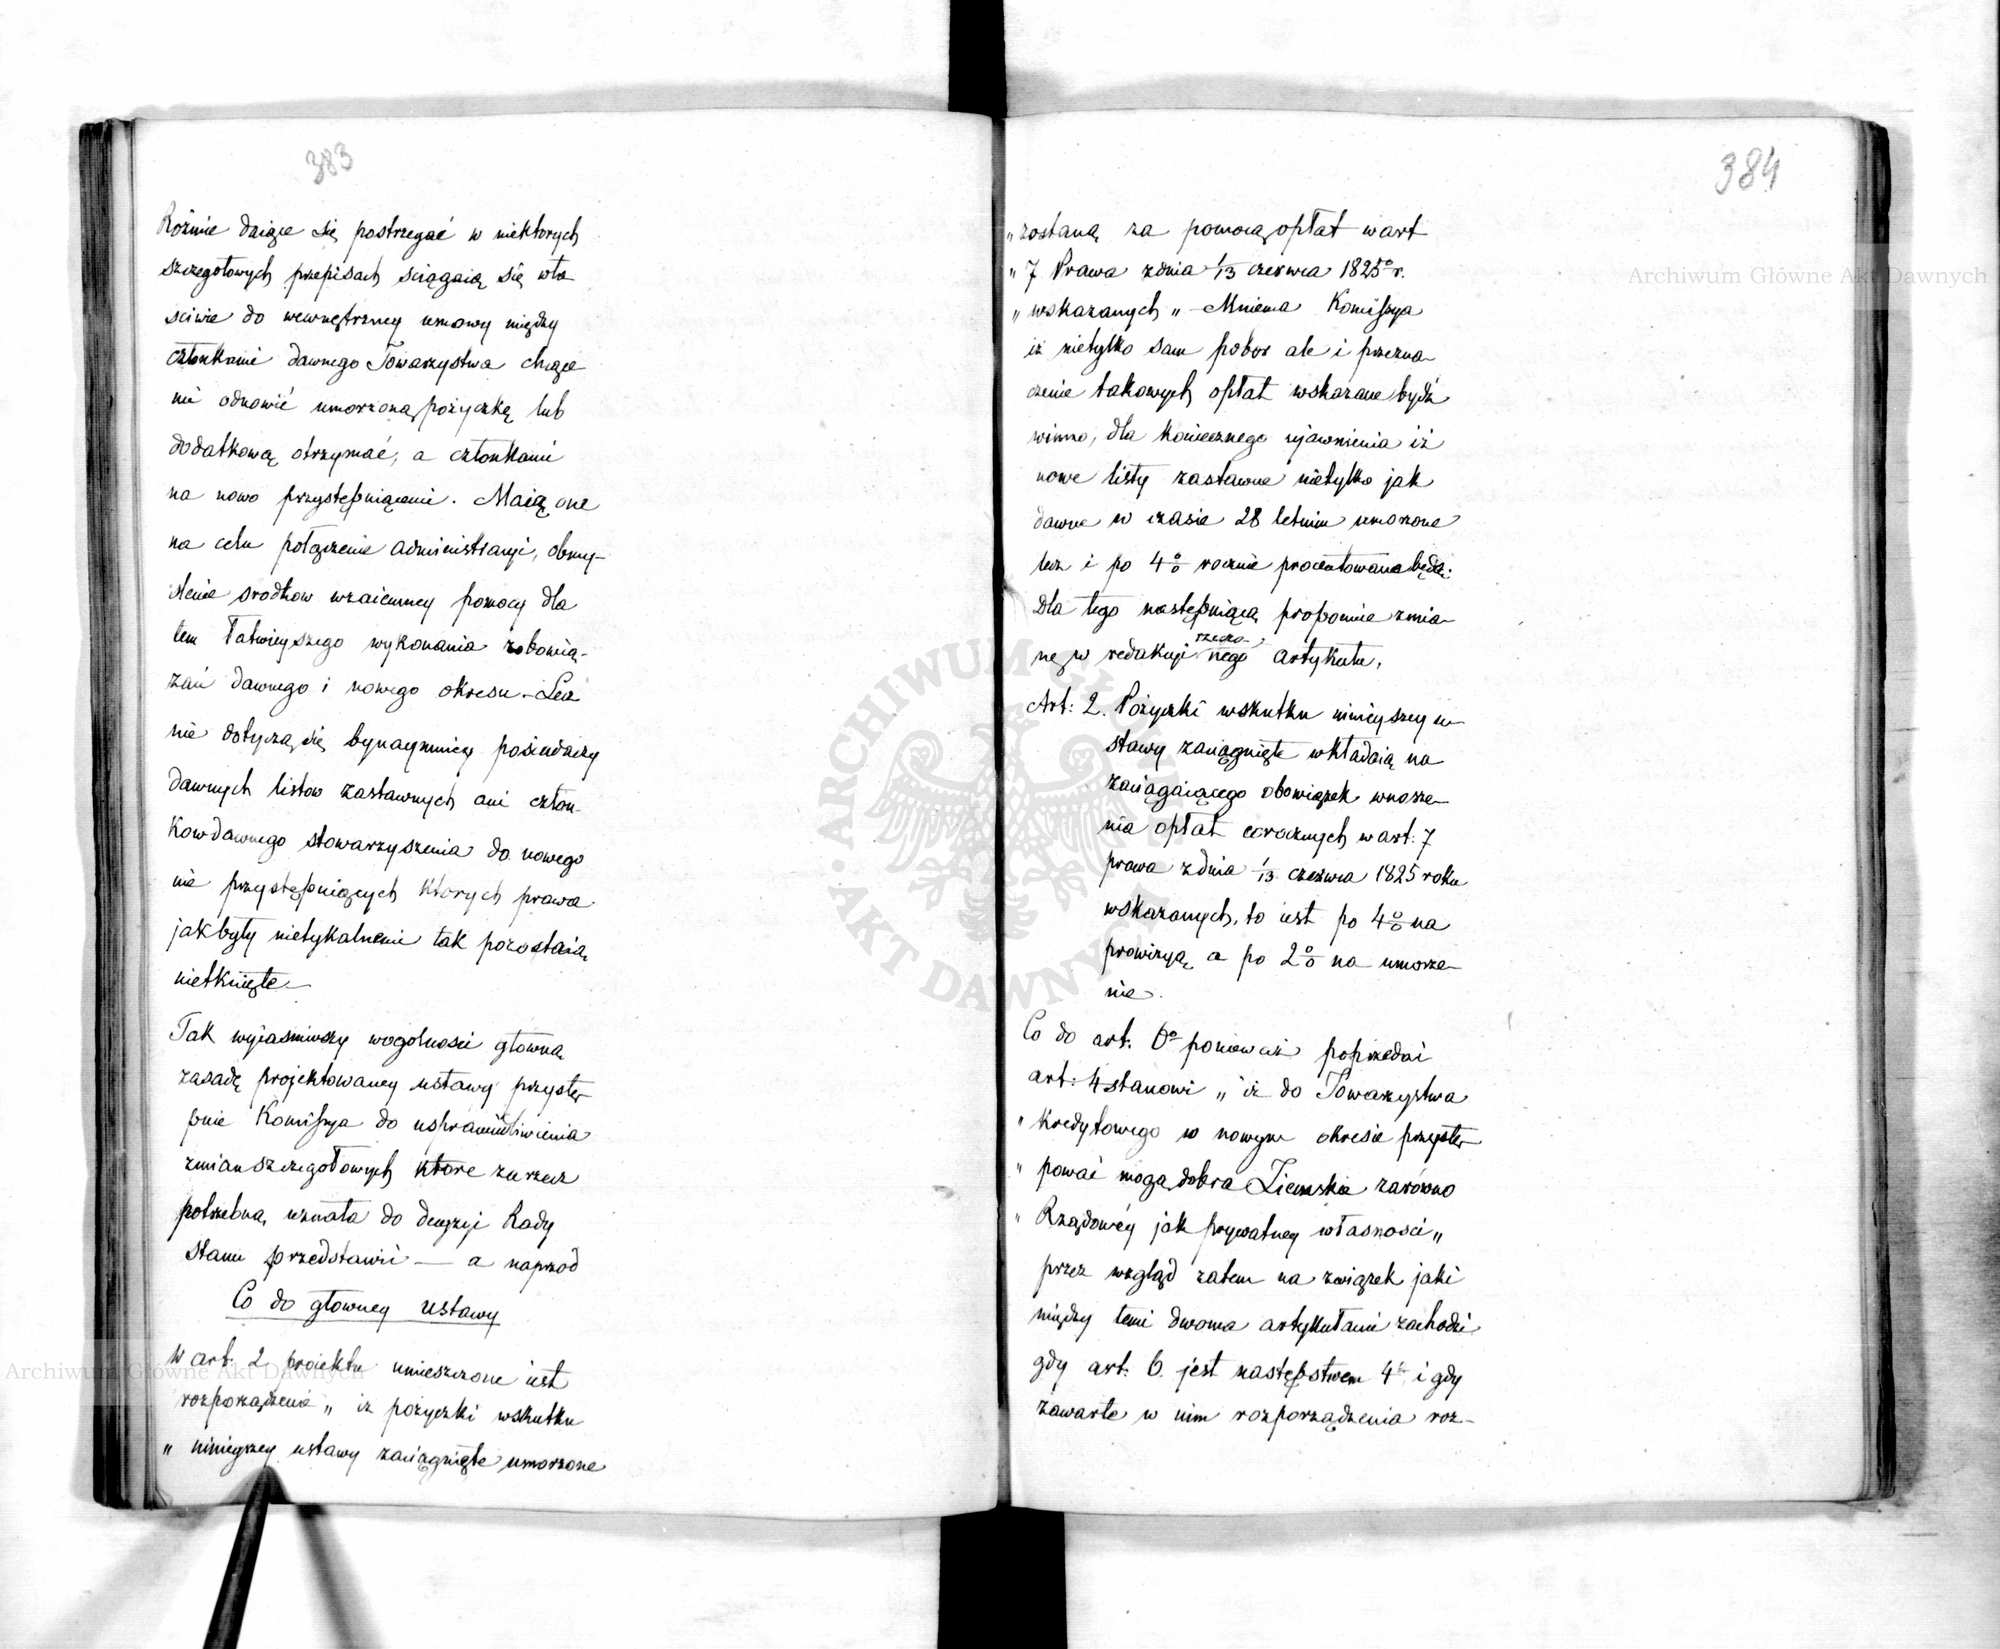 383
Roźnie dające się postrzegać w niektorych
szczegołowych przepisach sciągaią się wła
sciwie do wewnętrzney umowy między
członkami dawnego Towarzystwa chcące
mi odnowić umorzoną pożyczkę lub
dodatkową otrzymać, a członkami
na nowo przystępuiącemi. Maią one
na celu połączenie administracyi, obmy-
slenie srodkow wzaiemney pomocy dla
tem łatwieyszego wykonania zobowią-
zań dawnego i nowego okresu. – Lecz
nie dotyczą się bynaymniey posiadaczy
dawnych listow zastawnych ani człon-
kow dawnego stowarzyszenia do nowego
nie przystępuiących ktorych prawa
jak były nietykalnemi tak pozostaią
nietknięte –
Tak wyiasniwszy wogolnosci głowną
zasadę projektowaney ustawy przystę
puie Kommissya do usprawiedliwienia
zmian szczegołowych ktore za rzecz
potrzebną uznała do decyzyi Rady
Stanu przedstawić — a naprzod
Co do głowney ustawy
W art. 2 proiektu umieszczone iest
rozporządzenie „ iż pożyczki wskutku
„ ninieyszey ustawy zaciągnięte umorzone
384
„ zostaną za pomocą opłat w art
„ 7 Prawa z dnia 1/13 czerwca 1825º r.
„ wskazanych „ – Mniema Komissya
iż nietylko sam pobor ale i przezna-
czenie takowych opłat wskazane bydź
winno, dla koniecznego ujawnienia iż
nowe listy zastawne nietylko jak
dawne w czasie 28 letnim umorzone
lecz i po 4 % rocznie procentowane będą.
Dla tego następuiącą proponuie zmia-
nę w redakcyi rzeczo-
nego artykułu,
Art: 2. Pożyczki wskutku ninieyszey u-
stawy zaciągnięte wkładaią na
zaciągaiącego obowiązek wnosze-
nia opłat corocznych w art. 7
prawa z dnia 1/13 czerwca 1825 roku
wskazanych, to iest po 4 % na
prowizyą, a po 2 % na umorze-
nie.
Co do art. 6º ponieważ poprzedni
art: 4 stanowi „ iż do Towarzystwa
„ Kredytowego w nowym okresie przystę-
„ pować mogą dobra Ziemskie zarówno
„ Rządowéy jak prywatney własnosci „
przez wzgląd zatem na związek jaki
między temi dwoma artykułami zachodzi
gdy art. 6. jest następstwem 4º i gdy
zawarte w nim rozporządzenia roz-
Archiwum Główne Akt Dawnych
Archiwum Główne Akt Dawnych
ARCHIWUM GŁÓWNE AKT DAWNYCH